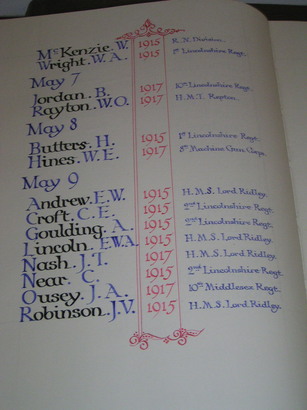 McKenzie. W. 1915 R.N. Division.
Wright. W.A. 1915 1st Lincolnshire Regt.
May 7
Jordan. B. 1917 10th Lincolnshire Regt.
Rayton. W.O. 1917 H.M.T. Rayton.
May 8
Butters. H. 1915 1st Lincolnshire Regt.
Hines. W.E. 1917 8th Machine Gun Corps.
May 9
Andrew. E.W. 1915 H.M.S. Lord Ridley.
Croft. C.E. 1915 2nd Lincolnshire Regt.
Goulding. A. 1915 2nd Lincolnshire Regt.
Lincoln. E.W.A. 1915 H.M.S. Lord Ridley.
Nash. J.T. 1917 H.M.S. Lord Ridley.
Near. C. 1915 2nd Lincolnshire Regt.
Ousey. J.A. 1917 10th Middlesex Regt.
Robinson. J.V. 1915 H.M.S. Lord Ridley.